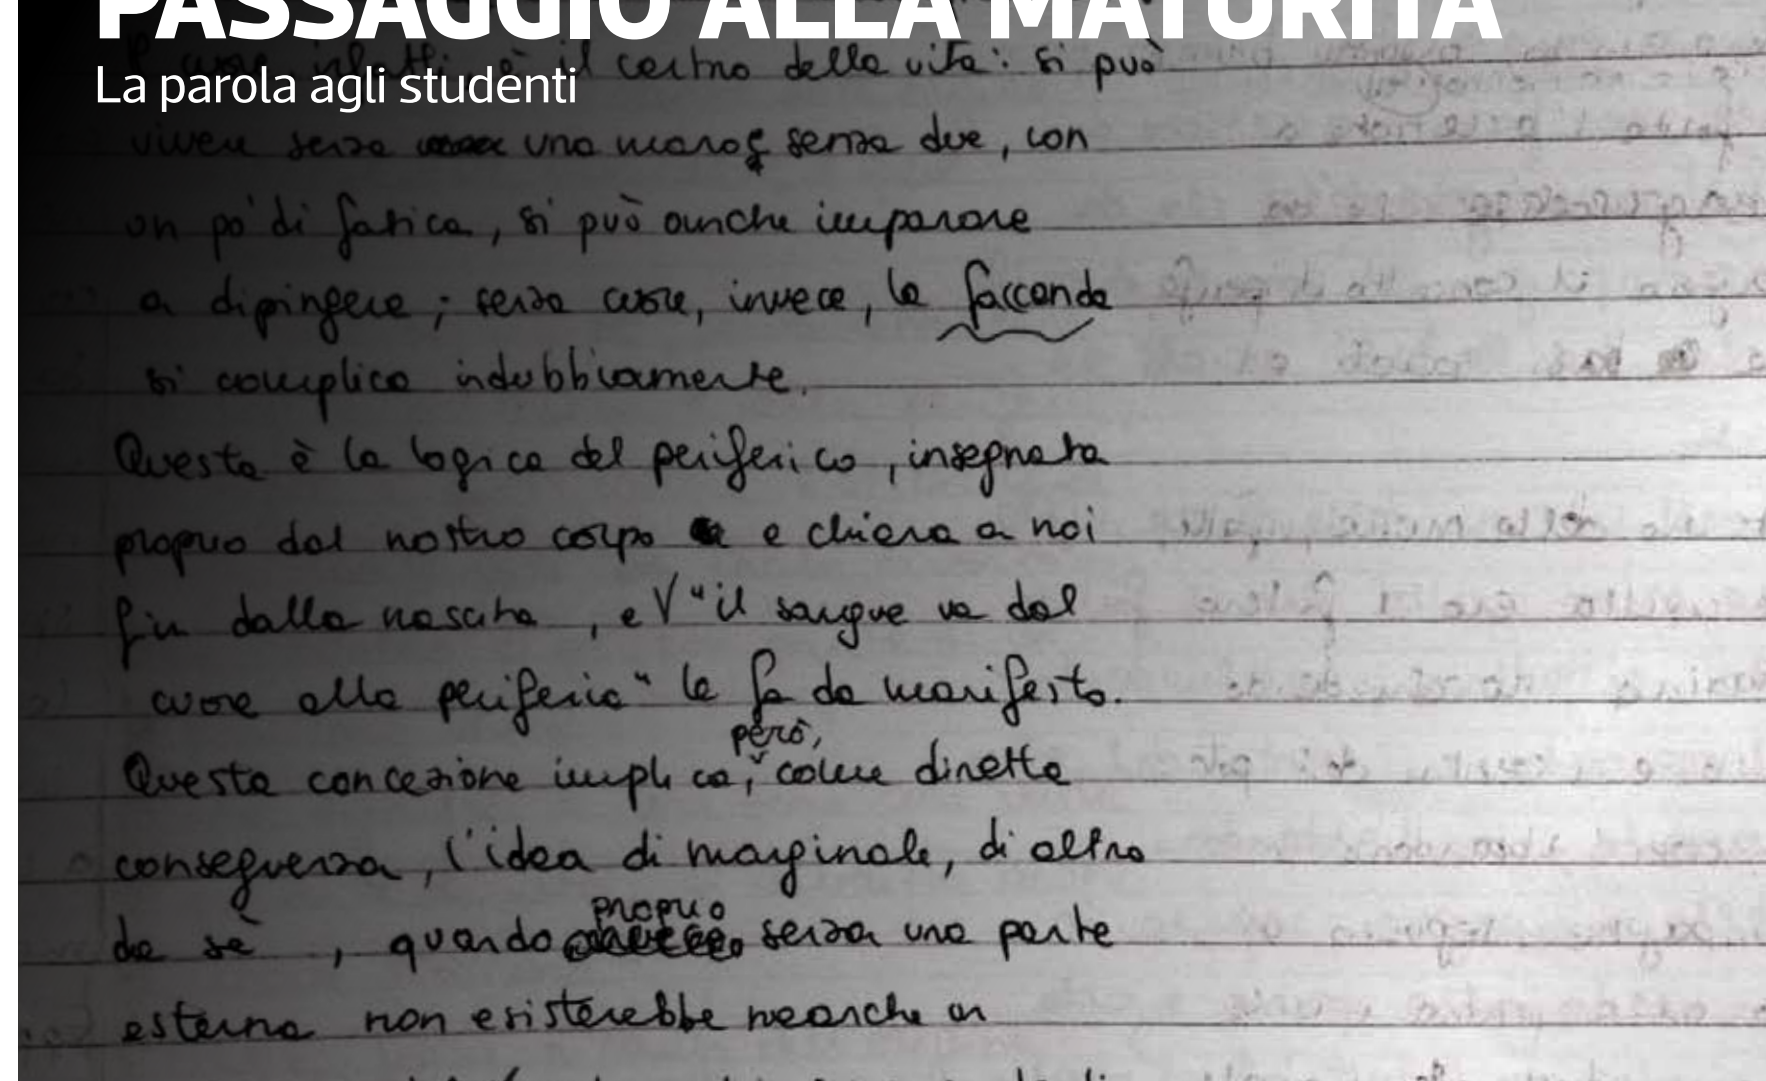 PASSAGGIO ALLA MATURITÀ
La parola agli studenti
il centro della vita: si può
vivere senza una mano e senza due, con
un pò di fatica, si può anche imparare
a dipingere; senza cuore, invece, la faccenda
si complica indubbiamente.
Questa è la logica del periferico, insegnata
proprio dal nostro corpo e chiara a noi
fin dalla nascita, e "il sangue va dal
cuore alla periferia" le fa da manifesto.
però,
Questa concezione implica, come diretta
conseguenza, l'idea di marginale, di altro
proprio
da sè, quando senza una parte
esterna non esisterebbe neanche un